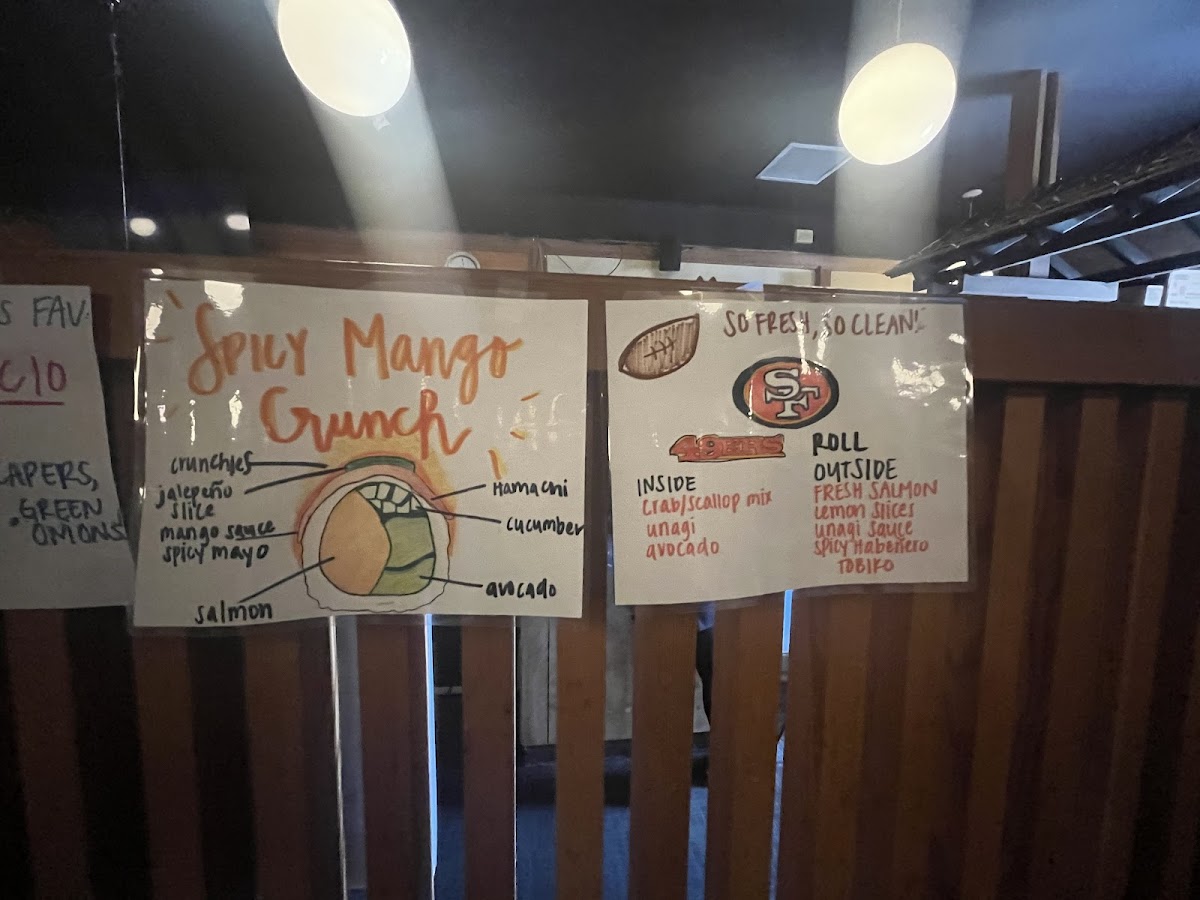 S FAV.
CIO
APERS,
GREEN
ONIONS
SPICY Mango
Crunch
crunchies
jalepeño
slice
mango sauce
spicy mayo
salmon
Hamachi
cucumber
avocado
SO FRESH, SO CLEAN!
SF
49ERS
ROLL
INSIDE
crab/scallop mix
unagi
avocado
OUTSIDE
FRESH SALMON
Lemon slices
unagi sauce
spicy Habeñero
TOBIKO